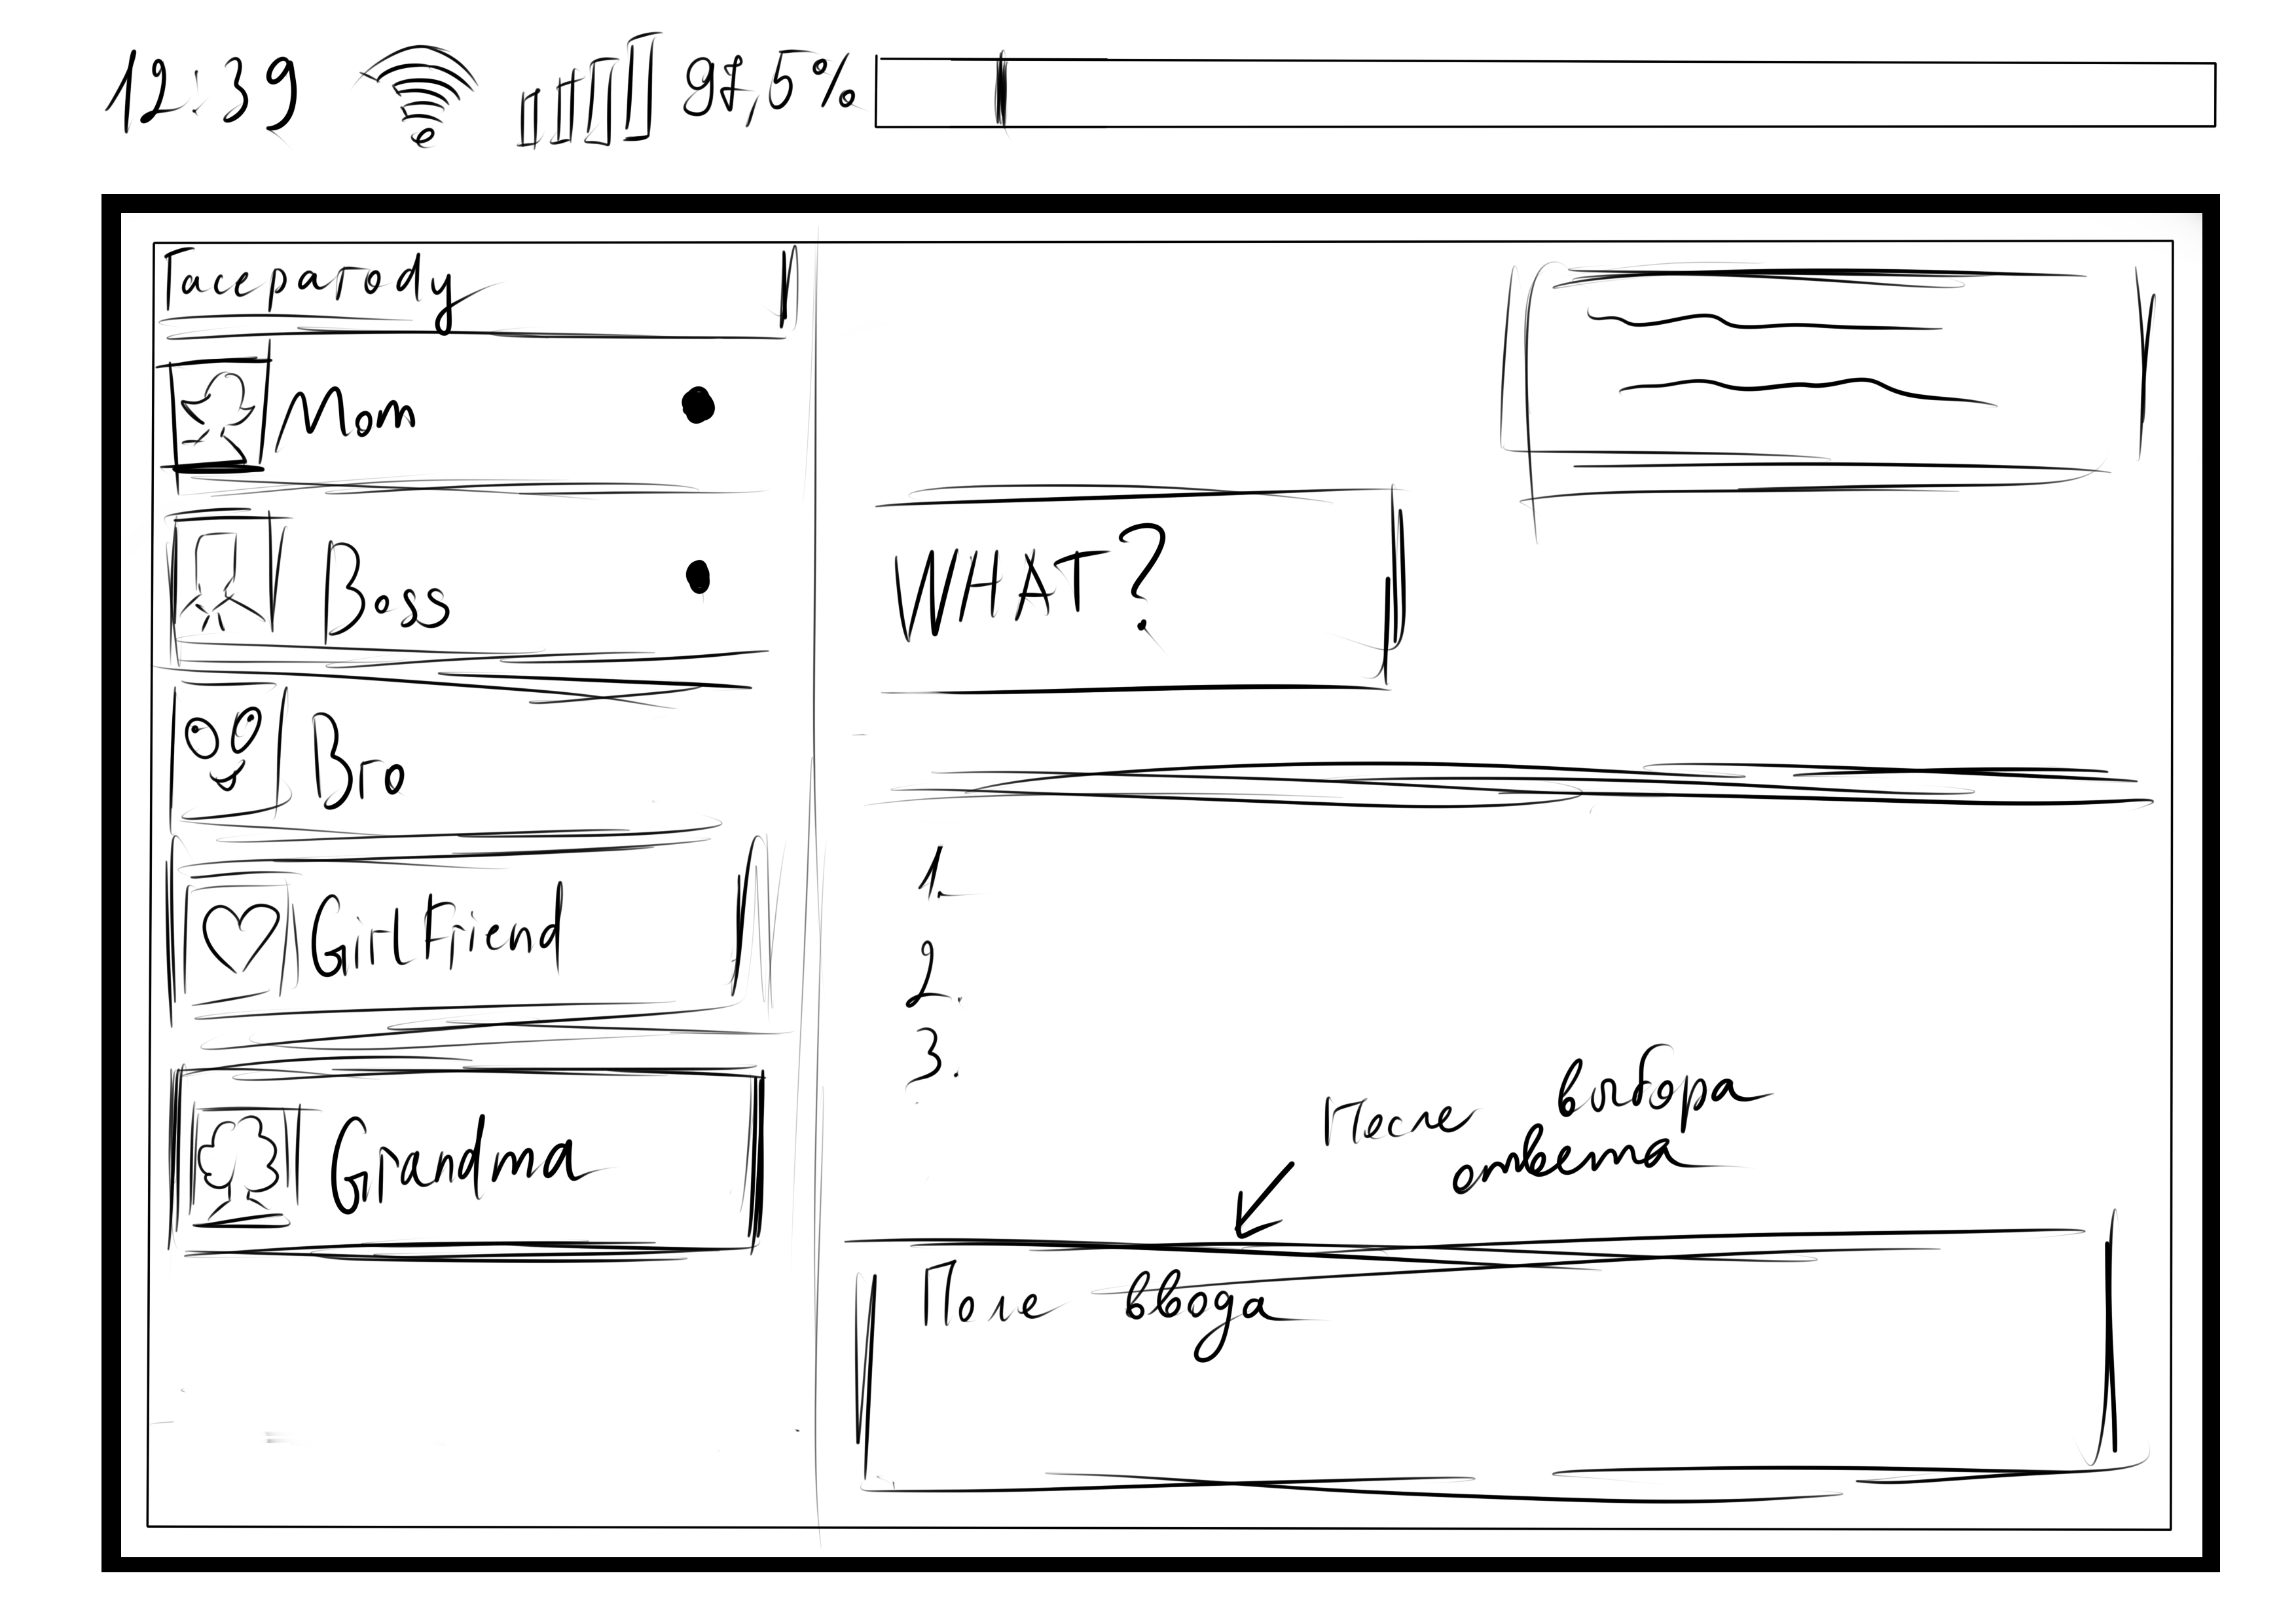 12:39 97,5%
Faceparody
Mom
Boss
Bro
GirlFriend
Grandma
WHAT?
1.
2.
3.
После выбора
ответа
Поле ввода